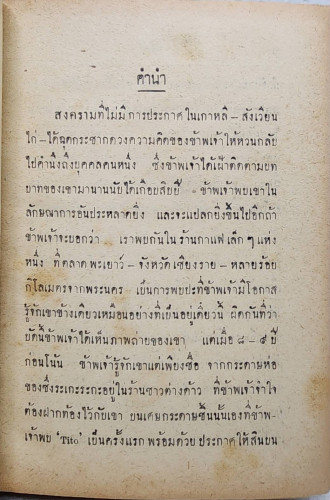 คำนำ
สงครามที่ไม่มีการประกาศในเกาหลี – สังเวียน
ไก่ – ได้ฉุดกระชากดวงความคิดของข้าพเจ้าให้หวนกลับ
ไปคำนึงถึงบุคคลคนหนึ่ง ซึ่งข้าพเจ้าได้เฝ้าติดตามบท
บาทของเขามานานนับได้เกือบสิบปี ข้าพเจ้าพบเขาใน
ลักษณาการอันประหลาดยิ่ง และจะแปลกยิ่งขึ้นไปอีกถ้า
ข้าพเจ้าจะบอกว่า เราพบกันในร้านกาแฟเล็กๆ แห่ง
หนึ่ง ที่ตลาดพะเยาว์ – จังหวัดเชียงราย – หลายร้อย
กิโลเมตรจากพระนคร เป็นการพบปะที่ข้าพเจ้ามีโอกาส
รู้จักเขาข้างเดียวเหมือนอย่างที่เป็นอยู่เดี๋ยวนี้ ผิดกันที่ว่า
บัดนี้ข้าพเจ้าได้เห็นภาพถ่ายของเขา แต่เมื่อ ๘ – ๙ ปี
ก่อนโน้น ข้าพเจ้ารู้จักเขาแต่เพียงชื่อ จากกระดาษห่อ
ของซึ่งระเกะระกะอยู่ในร้านชาวต่างด้าว ที่ข้าพเจ้าจำใจ
ต้องฝากท้องไว้กับเขา บนเศษกระดาษชิ้นนั้นเองที่ข้าพ-
เจ้าพบ ‘Tito’ เป็นครั้งแรก พร้อมด้วย ประกาศให้สินบน